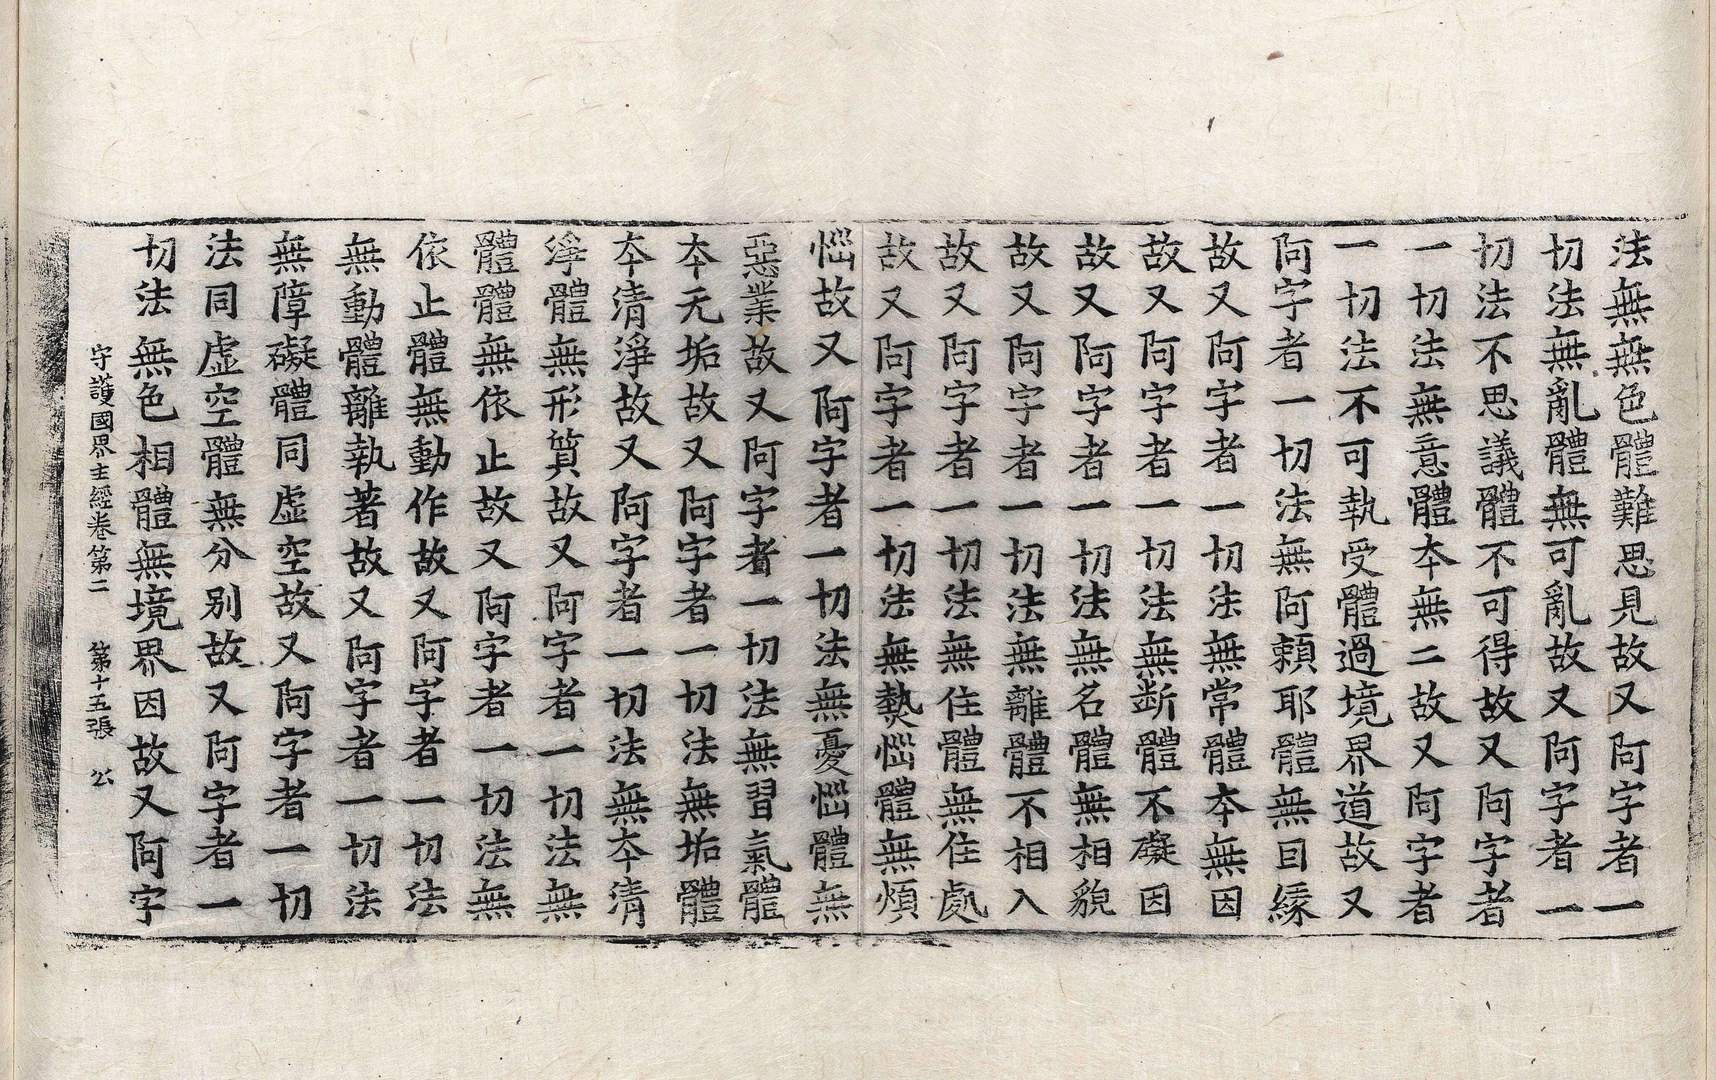 法無無色體難思見故又阿字者一
切法無亂體無可亂故又阿字者一
切法不思議體不可得故又阿字者
一切法無意體夲無二故又阿字者
一切法不可執受體過境界道故又
阿字者一切法無阿頼耶體無目縁
故又阿字者一切法無常體夲無因
故又阿字者一切法無断體不礙因
故又阿字者一切法無名體無相貌
故又阿字者一切法無離體不相入
故又阿字者一切法無住體無住處
故又阿字者一切法無熱惱體無煩
惱故又阿字者一切法無憂惱體無
惡業故又阿字者一切法無習氣體
夲元垢故又阿字者一切法無垢體
夲清淨故又阿字者一切法無夲清
淨體無形質故又阿字者一切法無
體體無依止故又阿字者一切法無
依止體無動作故又阿字者一切法
無動體離執著故又阿字者一切法
無障礙體同虛空故又阿字者一切
法同虛空體無分別故又阿字者一
切法無色相體無境界因故又阿字
守護國界主經卷第二 第十五張 公